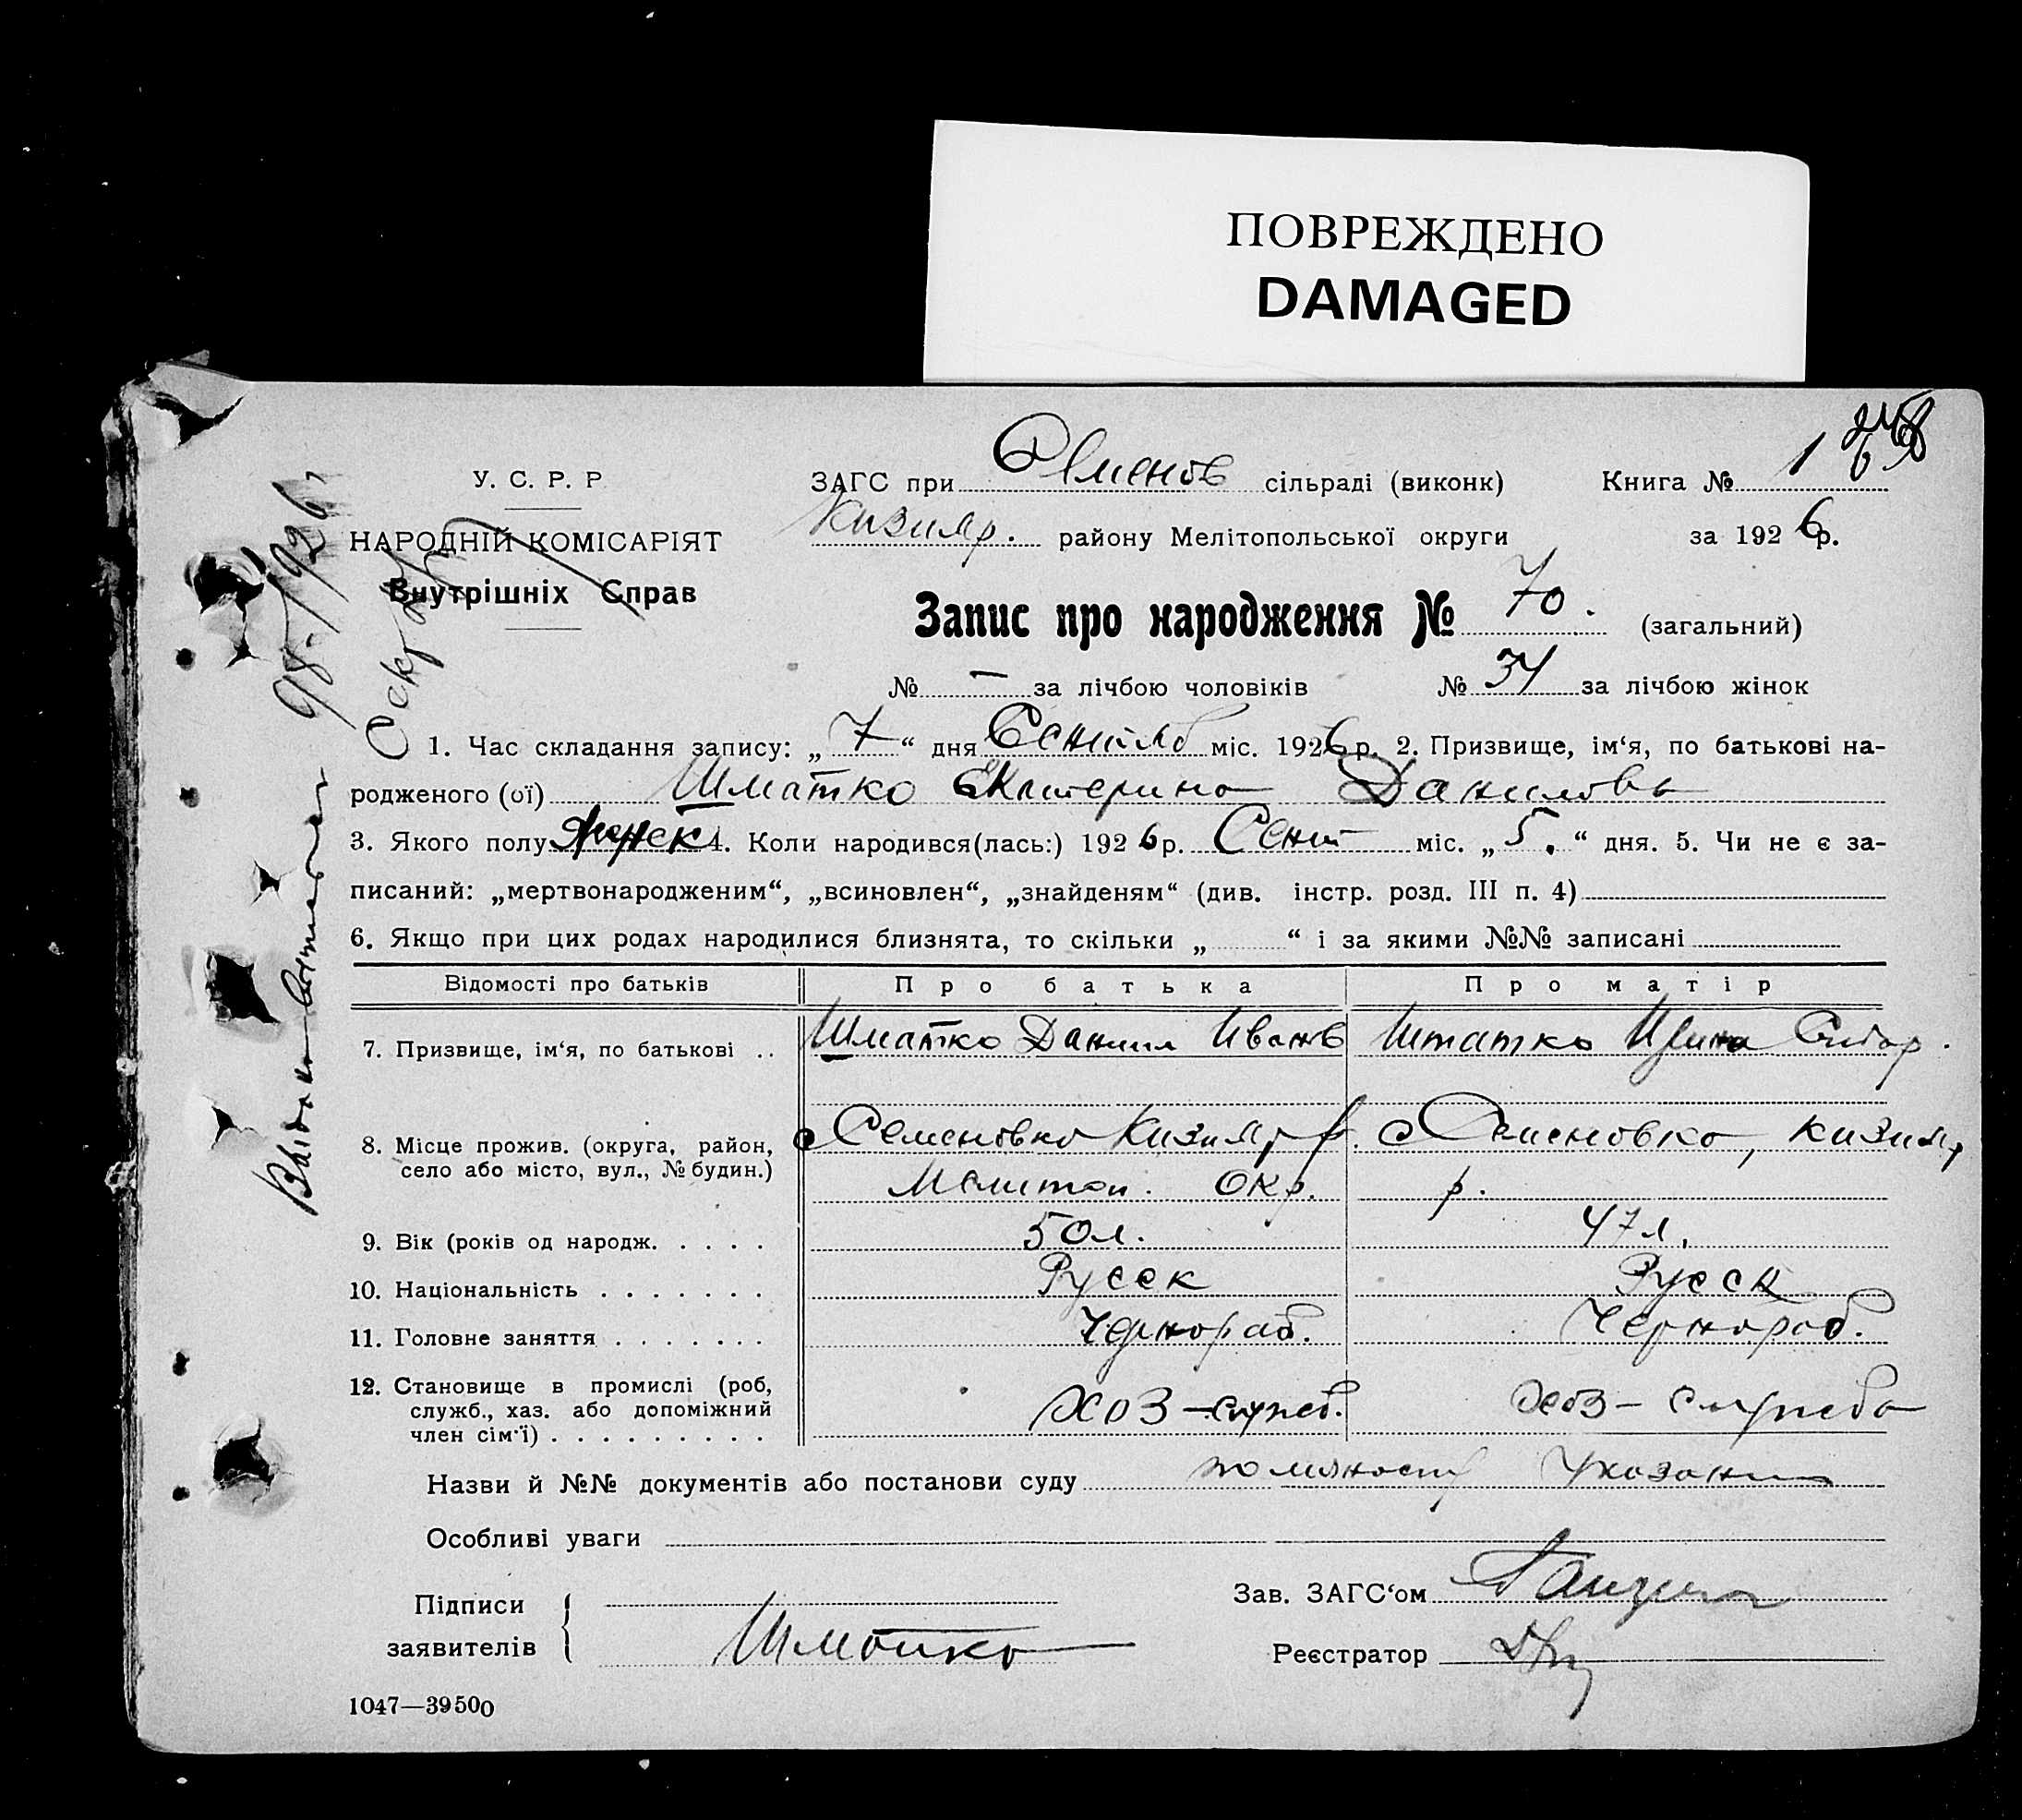 ПОВРЕЖДЕНО
DAMAGED
У. С. Р. Р
НАРОДНІЙ КОМІСАРІЯТ
Внутрішніх Справ
ЗАГС при Семенов сільраді (виконк)
Книга № 1
Кизияр. району Мелітопольської округи
за 1926 р.
Запис про народження № 70. (загальний)
№ — за лічбою чоловіків № 34 за лічбою жінок
1. Час складання запису: „ 7 “ дня Сентяб міс. 1926 р. 2. Призвище, ім‘я, по батькові на-
родженого (ої) Шматко Екатерина Даниловн
3. Якого полу женск 4. Коли народився(лась:) 1926 р. Сент міс. „ 5. “ дня. 5. Чи не є за-
писаний: „мертвонародженим“, „всиновлен“, „знайденям“ (див. інстр. розд. III п. 4)
6. Якщо при цих родах народилися близнята, то скільки „ “ і за якими №№ записані
Відомості про батьків Про батька Про матір
7. Призвище, ім‘я, по батькові .. Шматко Данил Иванов Шматко Ирина Сидор.
8. Місце прожив. (округа, район,
село або місто, вул., № будин.)
с Семеновка Кизияр р. с Семеновка, Кизияр
Мелитоп. окр. р.
9. Вік (років од народж. . . . . 50 л. 47 л.
10. Національність . . . . . . . Русск Русск
11. Головне заняття . . . . . . . Чернораб. Чернораб.
12. Становище в промислі (роб,
служб., хаз. або допоміжний
член сім‘ї) . . . . . . . . .
хоз - служб. хоз - служба
Назви й №№ документів або постанови суду указан
Особливі уваги
Підписи
заявителів
Шматко
Зав. ЗАГС‘ом
Реєстратор
1047—39500